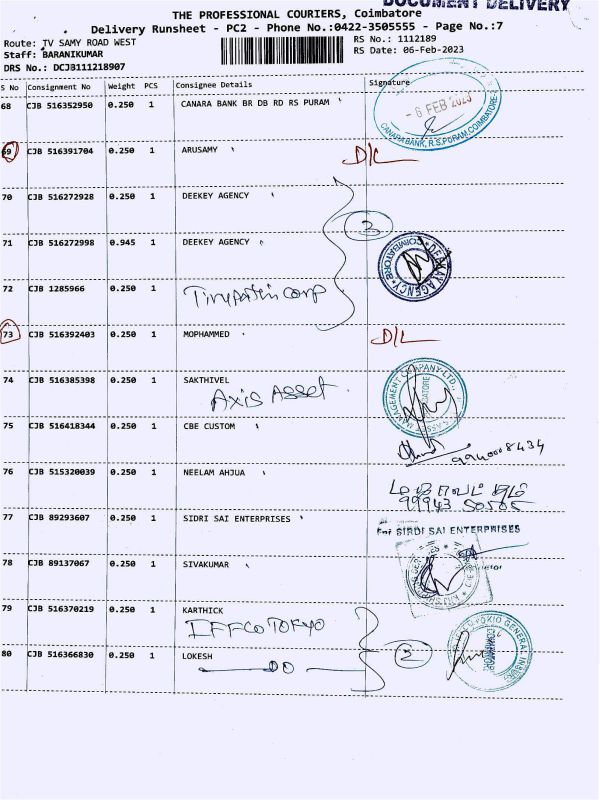 DOCUMENT DELIVERY
THE PROFESSIONAL COURIERS, Coimbatore
Delivery Runsheet - PC2 - Phone No.:0422-3505555 - Page No.:7
Route: TV SAMY ROAD WEST RS No.: 1112189
Staff: BARANIKUMAR RS Date: 06-Feb-2023
DRS No.: DCJB111218907
S No Consignment No Weight PCS Consignee Details Signature
68 CJB 516352950 0.250 1 CANARA BANK BR DB RD RS PURAM
- 6 FEB 2023
CANARA BANK, R.S.PURAM, COIMBATORE-2
69 CJB 516391704 0.250 1 ARUSAMY D/L
70 CJB 516272928 0.250 1 DEEKEY AGENCY
3
71 CJB 516272998 0.945 1 DEEKEY AGENCY
DEAKAY AGENCY COIMBATORE
72 CJB 1285966 0.250 1
73 CJB 516392403 0.250 1 MOPHAMMED D/L
74 CJB 516385398 0.250 1 SAKTHIVEL
Axis Asset
MANAGEMENT COMPANY LTD.,
75 CJB 516418344 0.250 1 CBE CUSTOM
9940008434
76 CJB 515320039 0.250 1 NEELAM AHJUA
99943 50505
77 CJB 89293607 0.250 1 SIDRI SAI ENTERPRISES
For SIRDI SAI ENTERPRISES
78 CJB 89137067 0.250 1 SIVAKUMAR
79 CJB 516370219 0.250 1 KARTHICK
IFFCO TOKYO
TOKIO GENERAL INSURA
COIMBATORE
80 CJB 516366830 0.250 1 LOKESH
DO
2